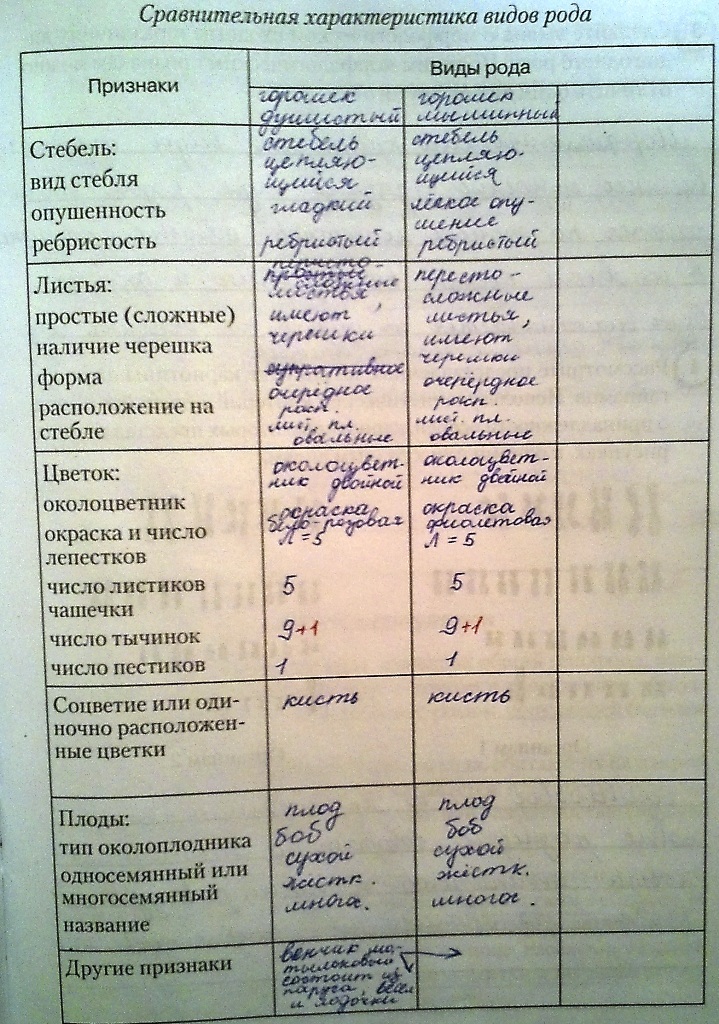 Сравнительная характеристика видов рода
Признаки
Виды рода
горошек
душистый
горошек
мышиный
Стебель:
вид стебля
опушенность
ребристость
стебель
цепляю-
щийся
гладкий
ребристый
стебель
цепляю-
щийся
лёгкое опу-
шение
ребристый
Листья:
простые (сложные)
наличие черешка
форма
расположение на
стебле
перисто-
простые сложные
листья,
имеют
черешки
очередное
расп.
лист. пл.
овальные
пересто-
сложные
листья,
имеют
черешки
очерёдное
расп.
лист. пл.
овальные
Цветок:
околоцветник
окраска и число
лепестков
число листиков
чашечки
число тычинок
число пестиков
околоцвет-
ник двойной
окраска
бело-розовая
Л = 5
5
9+1
1
околоцвет-
ник двойной
окраска
фиолетовая
Л = 5
5
9+1
1
Соцветие или оди-
ночно расположен-
ные цветки
кисть
кисть
Плоды:
тип околоплодника
односемянный или
многосемянный
название
плод
боб
сухой
жёстк.
многос.
плод
боб
сухой
жёстк.
многос.
Другие признаки
венчик мо-
тыльковый
состоит из
паруса, вёсел
и лодочки